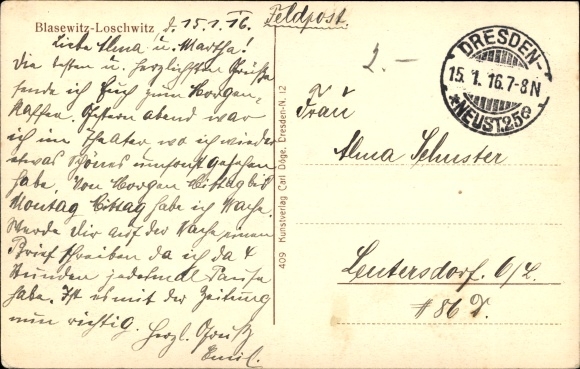 Blasewitz-Loschwitz d. 15.1.16.
Liebe Alma u. Martha!
Die besten u. herzlichsten Grüße
sende ich Euch zum Morgen-
kaffee. Gestern abend war
ich im Theater wo ich wieder
etwas schönes umsonst gesehen
habe. Von Morgen Mittag bis
Montag Mittag habe ich Wache.
Werde Dir auf der Wache einen
Brief schreiben da ich da 4
Stunden jedesmal Pause
habe. Ist es mit der Zeitung
nun richtig. Herzl. Gruß
Emil.
409 Kunstverlag Carl Döge, Dresden-N. 12
Feldpost.
2.—
DRESDEN-
15. 1. 16. 7-8 N
*NEUST. 25 e
Frau
Alma Schuster
Leutersdorf. O/L.
# 86 D.